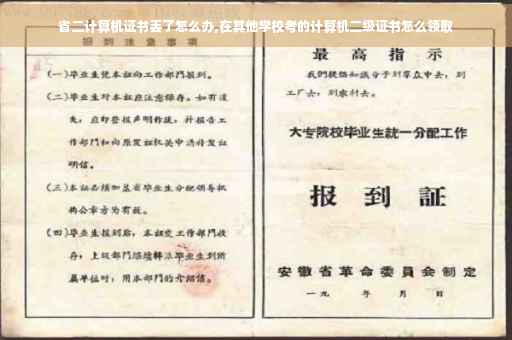 省二计算机证书丢了怎么办,在其他学校考的计算机二级证书怎么领取
报到注意事项
(一)毕业生凭本证向工作部门报到。
(二)毕业生对本证应注意保存。如有遗
失,应即登报声明作废,并报告工
作部门和向原发证机关申请补发证
明信。
(三)本证必须加盖省毕业生分配领导机
构公章方为有效。
(四)毕业生报到后,本证交工作部门收
存;上级部门
属单位时,用本部门的介绍信。
最高指示
我们提倡知识分子到群众中去,到
工厂去,到农村去。
大专院校毕业生統一分配工作
报到証
安徽省革命委員会制定
一九 年 月 日